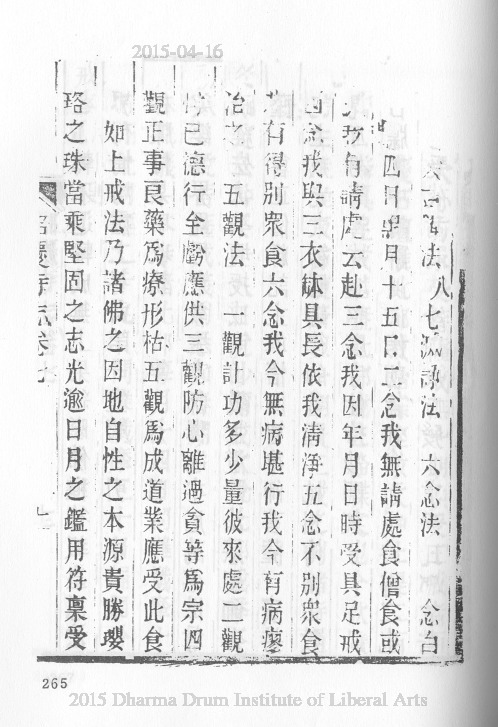 2015-04-16
法 八七滅諍法 六念法 念白
四日 月十五日二念我無請處食僧食或
我有請處云赴三念我因年月日時受具足戒
四念我與三衣鉢具長依我清淨五念不別衆食
有得別衆食六念我今無病堪行我今有病療
治之 五觀法 一觀計功多少量彼來處二觀
已德行全虧應供三觀防心離過貪等爲宗四
觀正事良藥爲療形枯五觀爲成道業應受此食
如上戒法乃諸佛之因地自性之本源貴勝瓔
珞之珠當乘堅固之志光逾日月之鑑用符稟受
寺志卷七
265
2015 Dharma Drum Institute of Liberal Arts